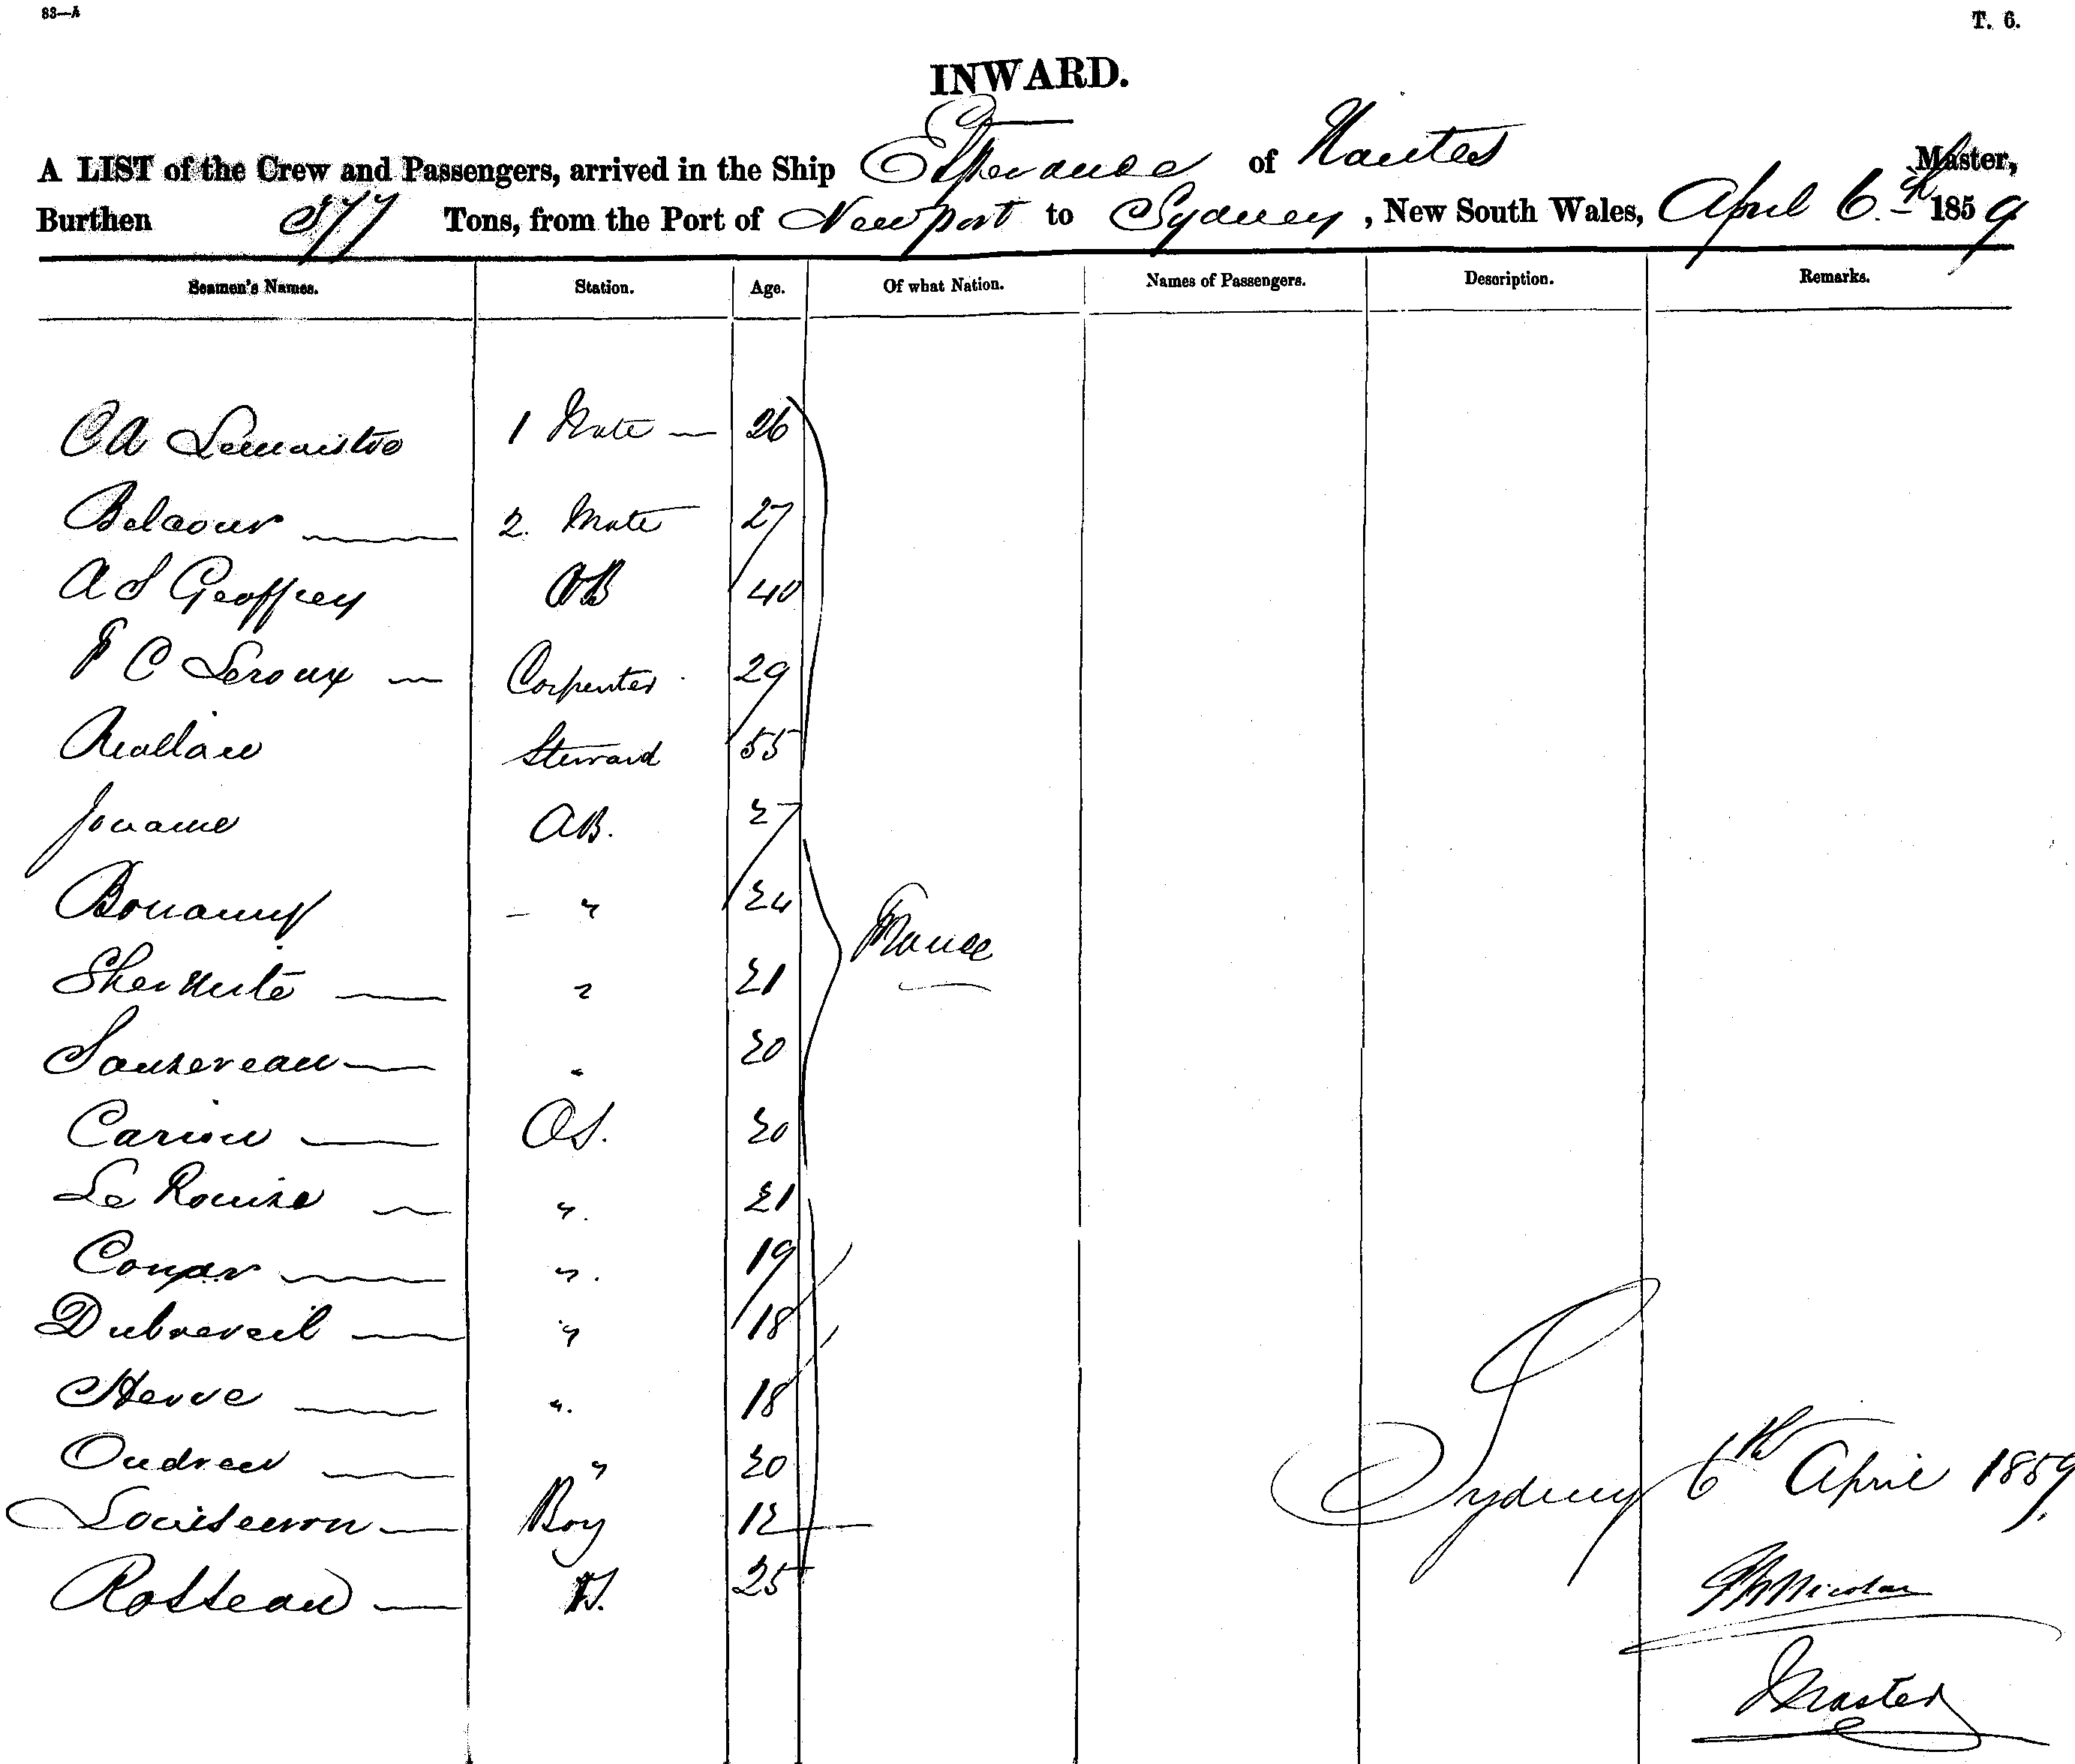 83—A
T. 6.
INWARD.
A LIST of the Crew and Passengers, arrived in the Ship Esperance of Nantes Master,
Burthen 377 Tons, from the Port of Newport to Sydney, New South Wales, April 6.th 1859
Seamen's Names. Station. Age. Of what Nation. Names of Passengers. Description. Remarks.
C A Lemaistre 1 Mate — 26
Belcour 2. Mate 27
A S Geoffrey AB 40
F C Leroux — Carpenter 29
Steward 55
Jouanne AB. 27
Bonamy — " 24
" 21
Sansereau — " 20
Cariou — OS. 20
Le Rouise — ". 21
". 19
Dubreveil — " 18
Herve — ". 18
Oudren — " 20
Boy 12
Rosseau — 25
France
Sydney 6th April 1859.
Nicolas
Master